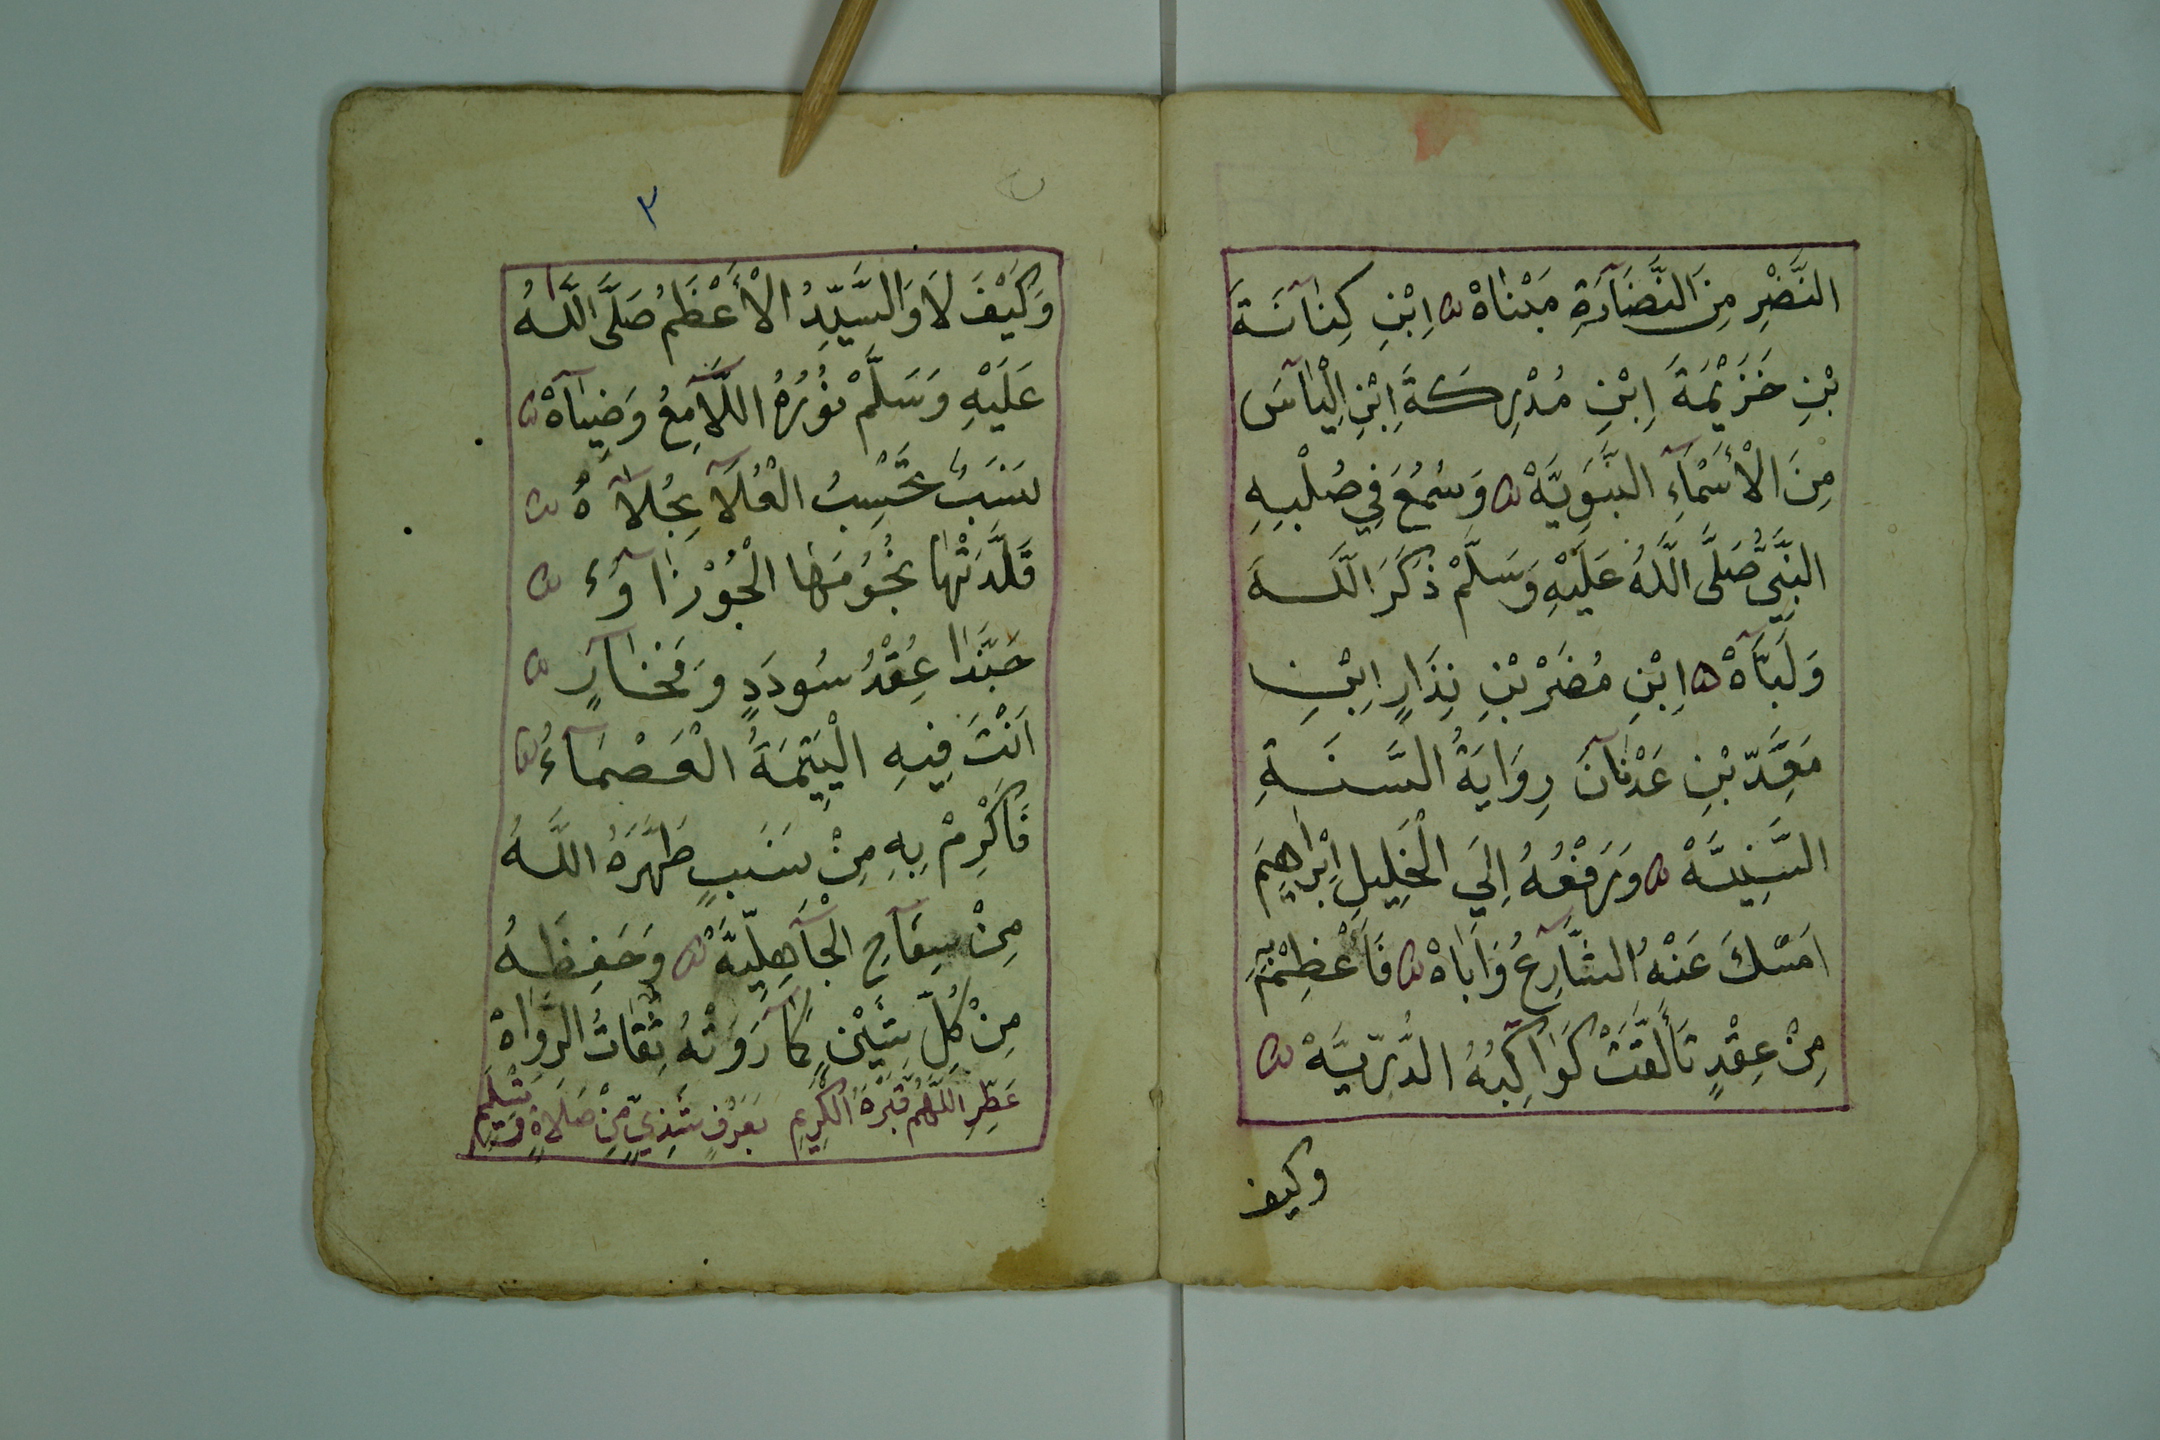 النَّضْرِ مِنَ النَّضَآرَةِ مَبْنَاهْ ۵ اِبْنِ كِنَآنَةَ
بْنِ خَزَيْمَةَ اِبْنِ مُدْرِكَةَ اِبْنِ اِلْيَآسَ
مِنَ الْأَسْمَآءِ النَّبَوِيَّهْ ۵ وَسُمُعَ فِي صُلْبِهِ
النَّبِيَّ صَلَّى اللَّهُ عَلَيْهِ وَسَلَّمْ ذَكَرَ اللَّهَ
وَلَبَّآهْ ۵ اِبْنِ مُضَرْ بْنِ نِذَارٍ اِبْنِ
مَعَدِّ بْنِ عَدْنَآنَ رِوَايَةُ السَّنَةِ
السَّنِيَّهْ ۵ وَرَفْعُهُ اِلَي الْخَلِيلِ اِبْرَاهِيمَ
اَمْسَكَ عَنْهُ الشَّآرِعُ وَاَبَاهْ ۵ فَأَعْظِمْ بِهِ
مِنْ عِقْدٍ تَأَلَّقَتْ كَوَاكِبُهُ الدُّرِّيَّهْ ۵
وكيف
٣
وَكَيْفَ لَا وَالسَّيِّدُ الْأَعْظَمُ صَلَّى اللَّهُ
عَلَيْهِ وَسَلَّمْ نُوُرُهُ اللَّآمِعُ وَضِيَآهْ ۵
نَسَبٌ تَحْسِبُ الْعُلَآ بِحُلَآهُ ۵
قَلَّدَتْهَا نُجُوُمَهَا الْجُوْزَآوُءَ ۵
حَبَّذَا عِقْدُ سُودَدٍ وَفَخَآرٍ ۵
اَنْتَ فِيهِ الْيَتِيمَةُ الْعَصْمَآءُ ۵
فَاَكْرِمْ بِهِ مِنْ نَسَبٍ طَهَّرَهُ اللَّهُ
مِنْ سِفَآحِ الْجَآهِلِيَّهْ ۵ وَحَفِظَهُ
مِنْ كُلِّ شَيْنٍ كَمَآ رَوَتْهُ ثِقَاتُ الرُّوَاهْ
عَطِّرِ اللَّهُمَّ قَبْرَهُ الْكَرِيمِ بَعَرْفٍ شَذِيٍّ مِّنْ صَلَاةٍ وَتَسْلِيمِ